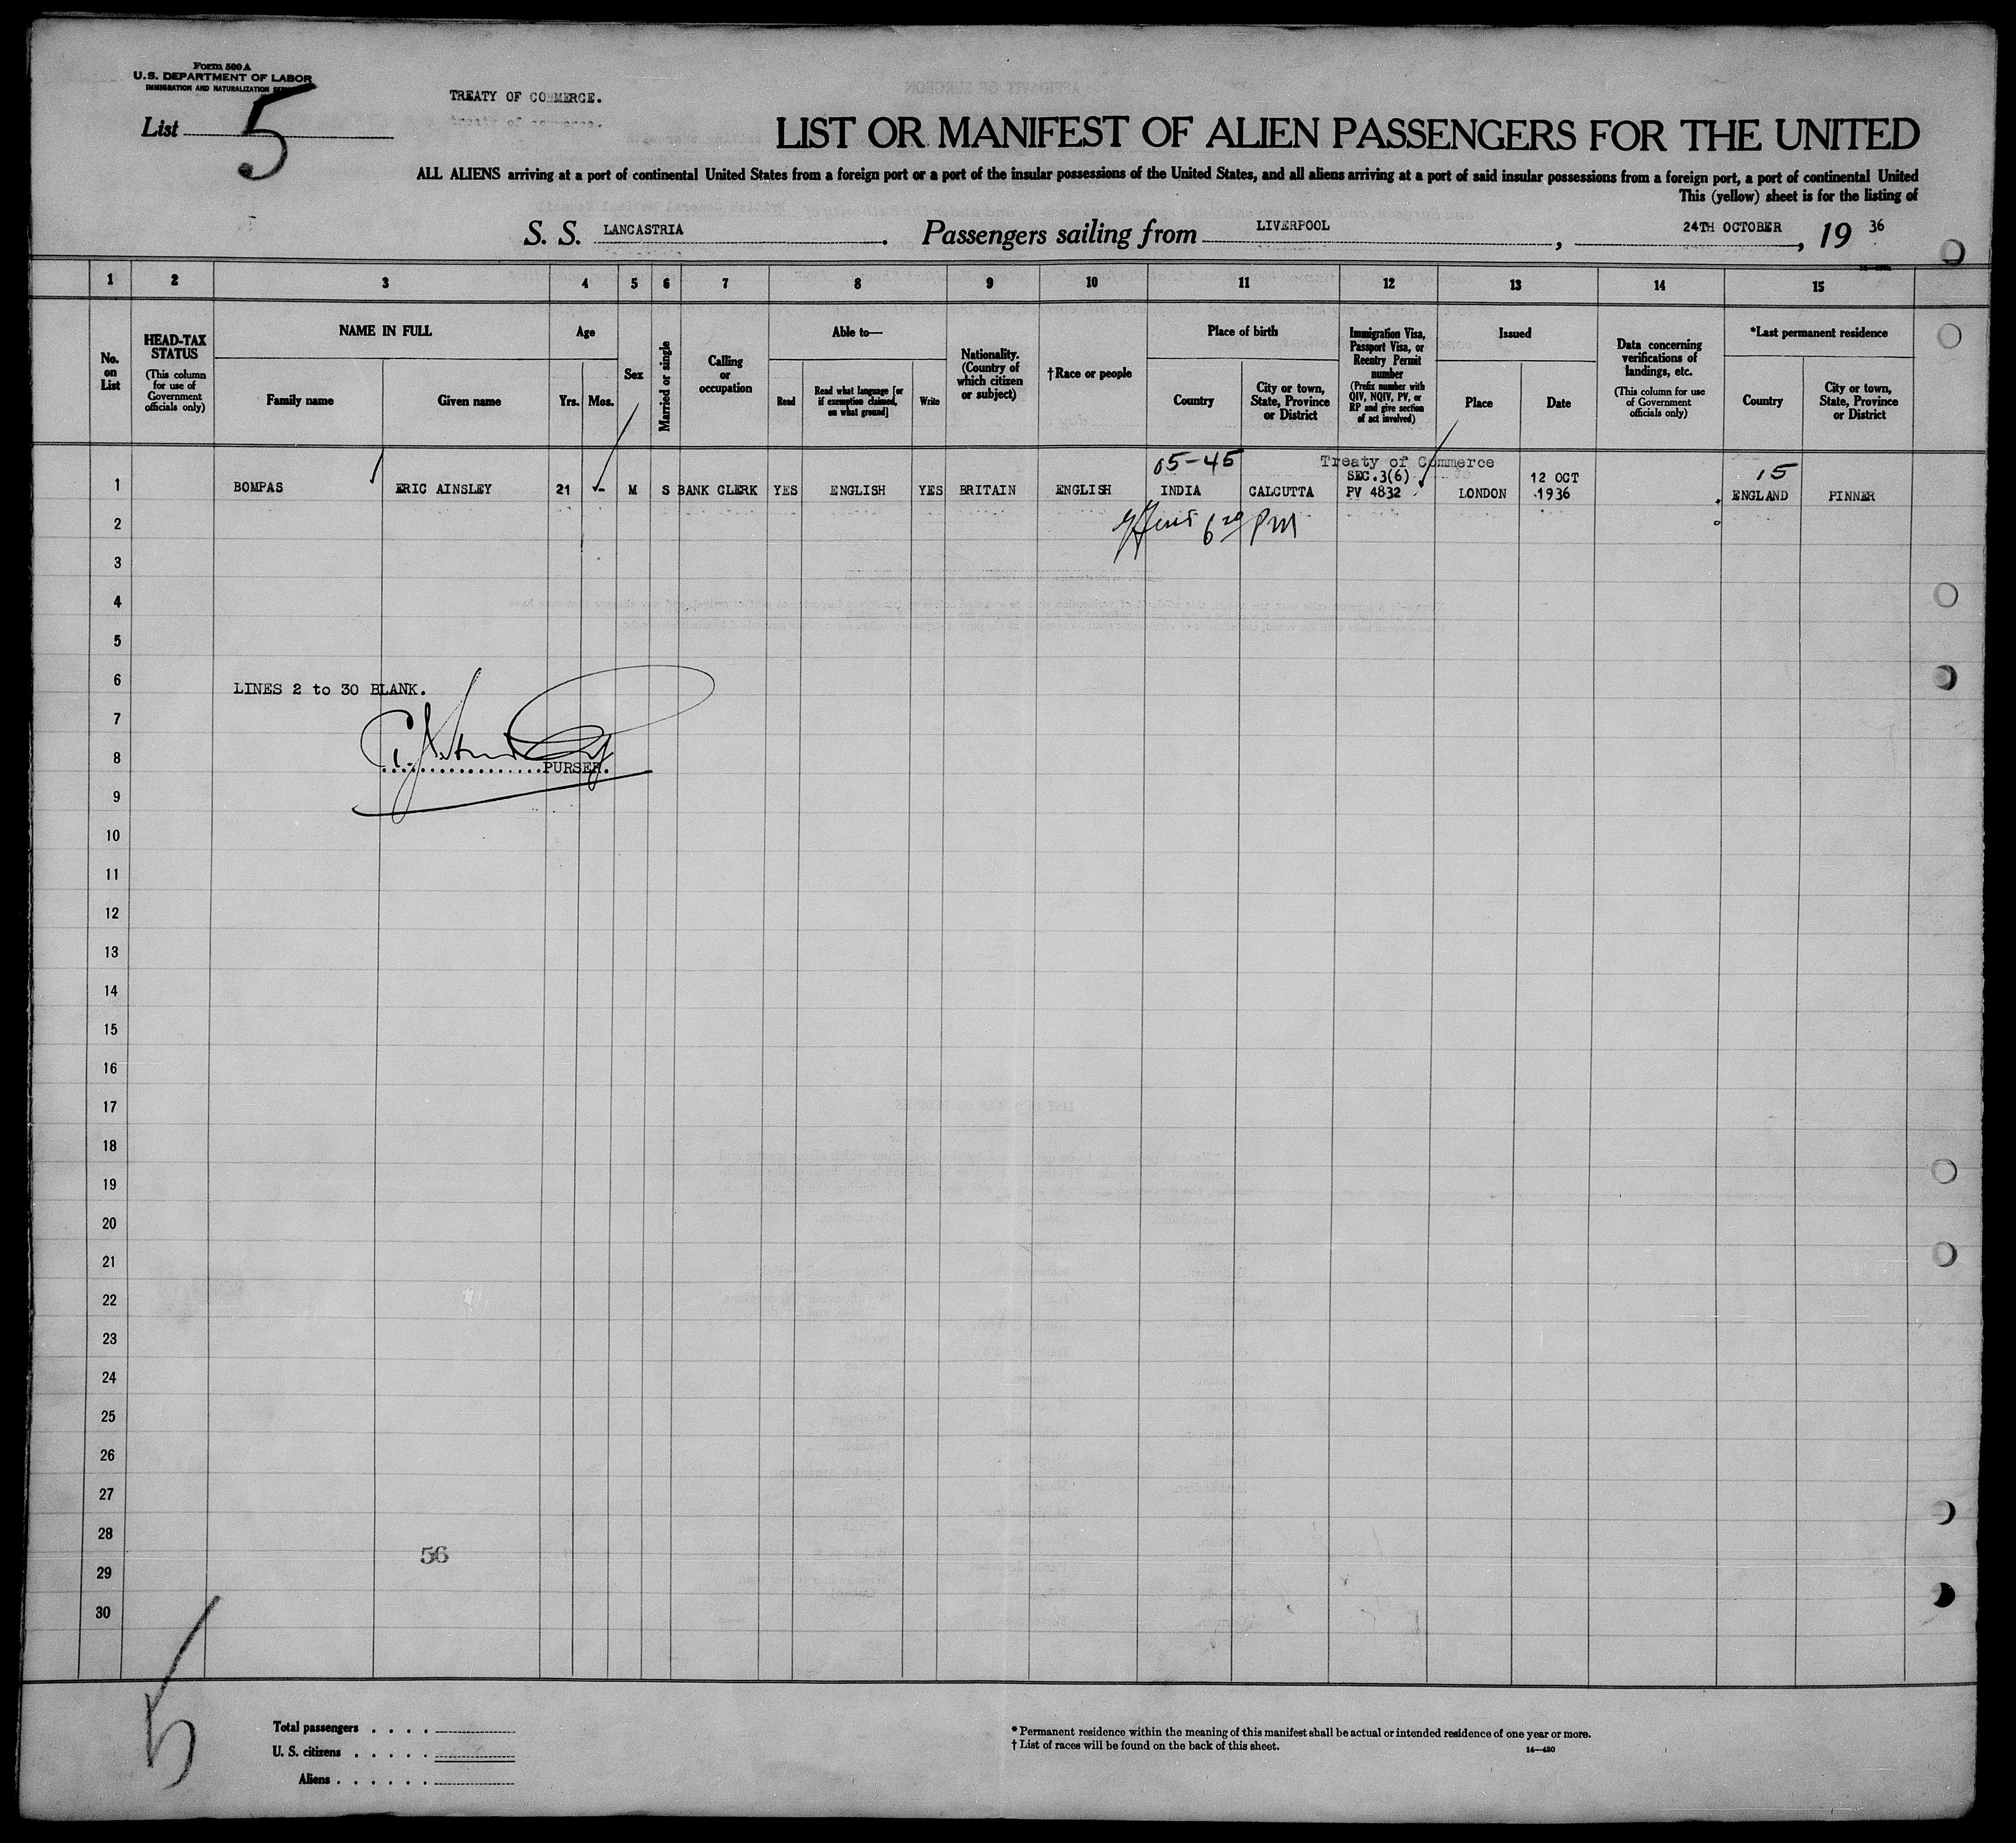 Form 500 A
U.S. DEPARTMENT OF LABOR
IMMIGRATION AND NATURALIZATION
List 5
TREATY OF COMMERCE.
treaty of commerce.
LIST OR MANIFEST OF ALIEN PASSENGERS FOR THE UNITED
ALL ALIENS arriving at a port of continental United States from a foreign port or a port of the insular possessions of the United States, and all aliens arriving at a port of said insular possessions from a foreign port, a port of continental United
This (yellow) sheet is for the listing of
S. S. LANCASTRIA. Passengers sailing from LIVERPOOL, 24TH OCTOBER, 19 36
1 2 3 4 5 6 7 8 9 10 11 12 13 14 15
No. on List
HEAD-TAX STATUS
(This column for use of Government officials only)
NAME IN FULL
Family name
Given name
Age
Yrs. Mos.
Sex
Married or single
Calling or occupation
Able to—
Read
Read what language [or if exemption claimed, on what ground]
Write
Nationality. (Country of which citizen or subject)
† Race or people
Place of birth
Country
City or town, State, Province or District
Immigration Visa, Passport Visa, or Reentry Permit number
(Prefix number with QIV, NQIV, PV, or RP and give section of act involved)
Issued
Place
Date
Data concerning verifications of landings, etc.
(This column for use of Government officials only)
*Last permanent residence
Country
City or town, State, Province or District
05-45 Treaty of Commerce 15
SEC.3(6) 12 OCT
1 BOMPAS ERIC AINSLEY 21 - M S BANK CLERK YES ENGLISH YES BRITAIN ENGLISH INDIA CALCUTTA PV 4832 LONDON 1936 ENGLAND PINNER
2 PM
3
4
5
6 LINES 2 to 30 BLANK.
7
8 PURSER.
9
10
11
12
13
14
15
16
17
18
19
20
21
22
23
24
25
26
27
28
56
29
30
5
Total passengers . . . .
U. S. citizens . . . . .
Aliens . . . . . .
* Permanent residence within the meaning of this manifest shall be actual or intended residence of one year or more.
† List of races will be found on the back of this sheet.
14—430